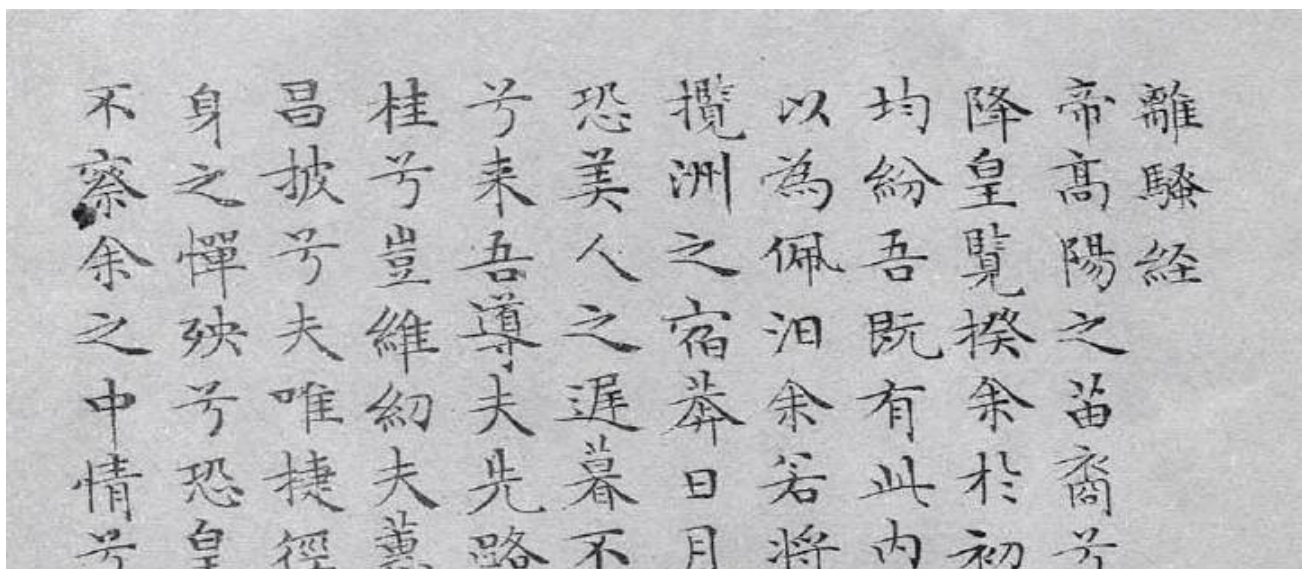 離騷経
帝髙陽之苗裔兮
降皇覽揆余於初
均紛吾既有此内
以為佩汨余若將
攬洲之宿莽日月
恐美人之遲暮不
兮来吾導夫先路
桂兮豈維紉夫蕙
昌披兮夫唯捷徑
身之憚殃兮恐皇
不察余之中情兮